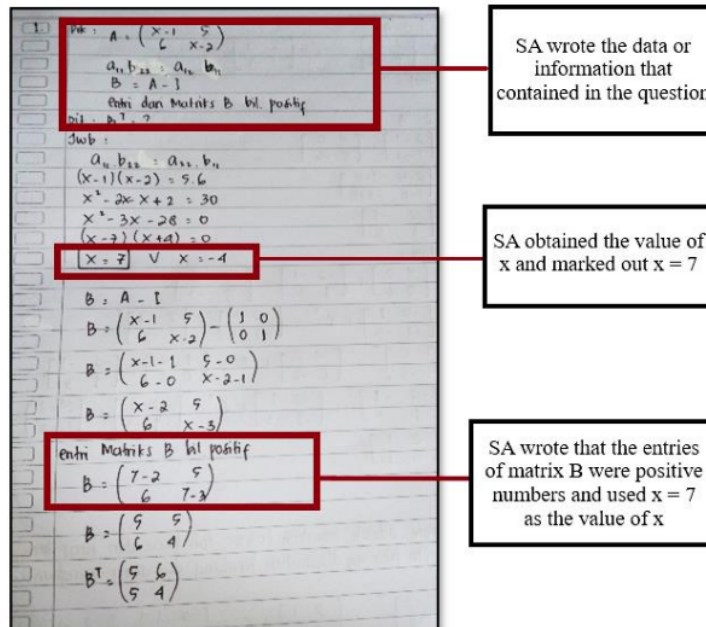 1
Dik : A = ( x-1 5
6 x-2 )
a₁₁ b₂₂ = a₁₂ b₁₁
B = A - I
entri dari Matriks B bil. positif
Dit : B^T = ?
Jwb :
a₁₁ b₂₂ = a₂₂ b₁₁
(x-1)(x-2) = 5.6
x² - 2x - x + 2 = 30
x² - 3x - 28 = 0
(x-7)(x+4) = 0
x = 7 V x = -4
B = A - I
B = ( x-1 5
6 x-2 ) - ( 1 0
0 1 )
B = ( x-1-1 5-0
6-0 x-2-1 )
B = ( x-2 5
6 x-3 )
entri Matriks B bil positif
B = ( 7-2 5
6 7-3 )
B = ( 5 5
6 4 )
B^T = ( 5 6
5 4 )
SA wrote the data or
information that
contained in the question
SA obtained the value of
x and marked out x = 7
SA wrote that the entries
of matrix B were positive
numbers and used x = 7
as the value of x